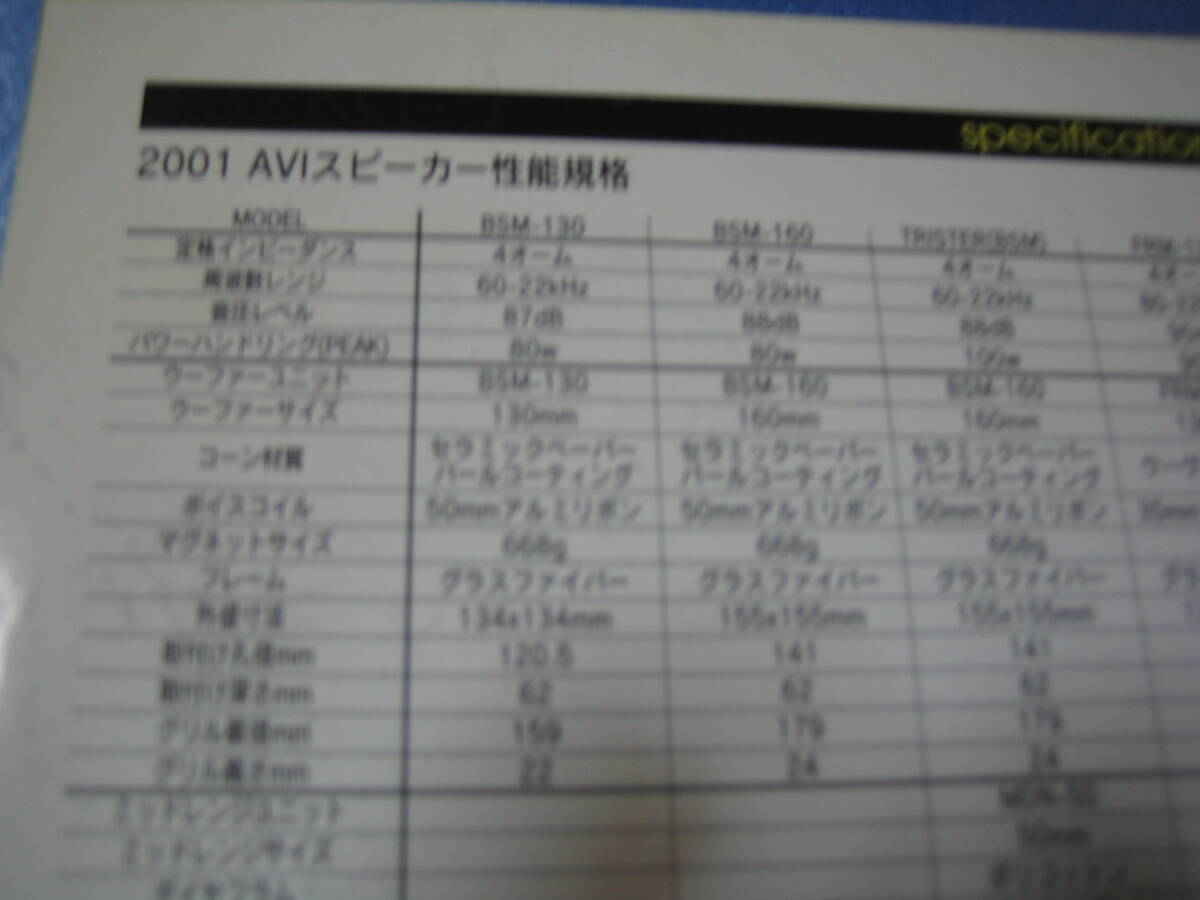 specification
2001 AVIスピーカー性能規格
MODEL BSM-130 BSM-160 TRISTER(BSM)
定格インピーダンス 4オーム 4オーム 4オーム
周波数レンジ 60-22kHz 60-22kHz 60-22kHz
音圧レベル 87dB 88dB 88dB
パワーハンドリング(PEAK) 80w 80w 100w
ウーファーユニット BSM-130 BSM-160 BSM-160
ウーファーサイズ 130mm 160mm 160mm
コーン材質 セラミックペーパー セラミックペーパー セラミックペーパー
パールコーティング パールコーティング パールコーティング
ボイスコイル 50mmアルミリボン 50mmアルミリボン 50mmアルミリボン 35mm
マグネットサイズ 668g 668g 668g
フレーム グラスファイバー グラスファイバー グラスファイバー
外径寸法 134x134mm 155x155mm 155x155mm
取付け孔径mm 120.5 141 141
取付け深さmm 62 62 62
グリル直径mm 159 179 179
グリル高さmm 22 24 24
ミッドレンジユニット
ミッドレンジサイズ 50mm
ダイヤフラム